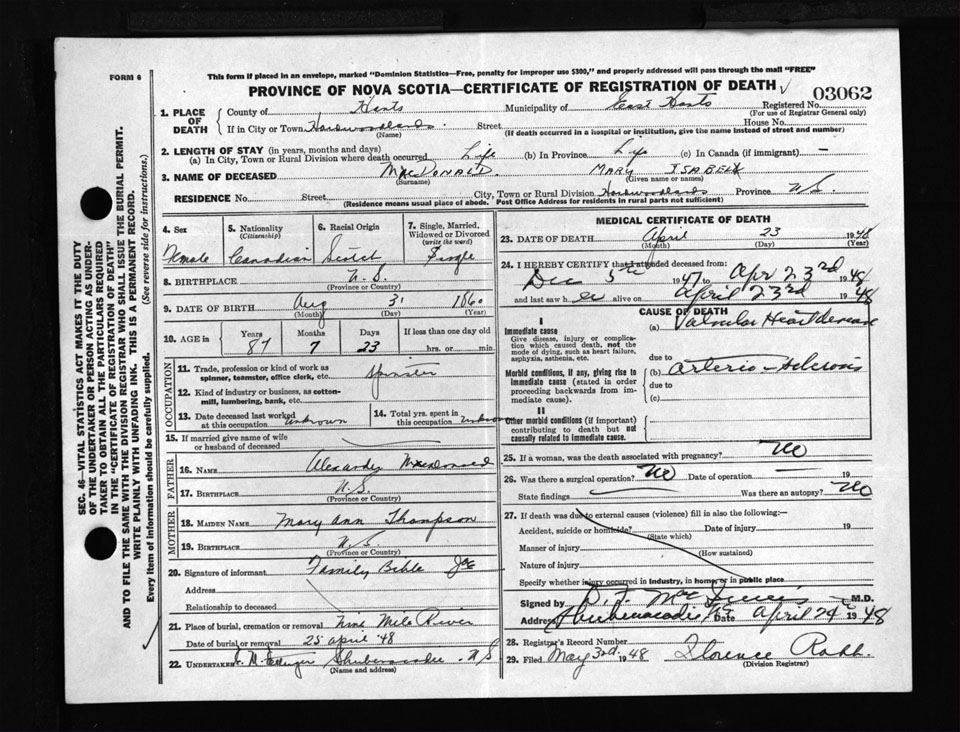 FORM 6
This form if placed in an envelope, marked "Dominion Statistics—Free, penalty for improper use $300," and properly addressed will pass through the mail "FREE"
PROVINCE OF NOVA SCOTIA—CERTIFICATE OF REGISTRATION OF DEATH
03062
1. PLACE OF DEATH
County of Hants Municipality of East Hants Registered No.
(For use of Registrar General only)
If in City or Town Hardwoodlands Street House No.
(Name) (If death occurred in a hospital or institution, give the name instead of street and number)
2. LENGTH OF STAY (in years, months and days)
(a) In City, Town or Rural Division where death occurred Life (b) In Province Life (c) In Canada (if immigrant) —
3. NAME OF DECEASED MacDONALD MARY ISABELL
(Surname) (Given name or names)
RESIDENCE No. Street City, Town or Rural Division Hardwoodlands Province N.S.
(Residence means usual place of abode. Post Office Address for residents in rural parts not sufficient)
4. Sex Female
5. Nationality (Citizenship) Canadian
6. Racial Origin Scotch
7. Single, Married, Widowed or Divorced (write the word) Single
8. BIRTHPLACE N.S.
(Province or Country)
9. DATE OF BIRTH Aug 31 1860
(Month) (Day) (Year)
10. AGE Years Months Days If less than one day old
87 7 23 hrs. or min.
OCCUPATION
11. Trade, profession or kind of work as spinner, teamster, office clerk, etc. Spinster
12. Kind of industry or business, as cotton-mill, lumbering, bank, etc.
13. Date deceased last worked at this occupation unknown
14. Total yrs. spent in this occupation unknown
15. If married give name of wife or husband of deceased
FATHER
16. NAME Alexander MacDonald
17. BIRTHPLACE N.S.
(Province or Country)
MOTHER
18. MAIDEN NAME Mary Ann Thompson
19. BIRTHPLACE N.S.
(Province or Country)
20. Signature of informant Family Bible
Address
Relationship to deceased
21. Place of burial, cremation or removal Nine Mile River
Date of burial or removal 25 April '48
22. UNDERTAKER Shubenacadie N S
(Name and address)
MEDICAL CERTIFICATE OF DEATH
23. DATE OF DEATH April 23 1948
(Month) (Day) (Year)
24. I HEREBY CERTIFY that I attended deceased from:
Dec 5th 1947 to Apr 23rd 1948
and last saw her alive on April 23rd 1948
CAUSE OF DEATH
I
Immediate cause
Give disease, injury or complication which caused death, not the mode of dying, such as heart failure, asphyxia, asthenia, etc.
(a) Valvular Heart disease
due to
Morbid conditions, if any, giving rise to immediate cause (stated in order proceeding backwards from immediate cause).
(b) Arterio-sclerosis
due to
(c)
II
Other morbid conditions (if important) contributing to death but not causally related to immediate cause.
25. If a woman, was the death associated with pregnancy? No
26. Was there a surgical operation? No Date of operation 19
State findings Was there an autopsy? No
27. If death was due to external causes (violence) fill in also the following:—
Accident, suicide or homicide? Date of injury 19
(State which)
Manner of injury
(How sustained)
Nature of injury
Specify whether injury occurred in industry, in home, or in public place
Signed by M.D.
Address Shubenacadie Date April 24 1948
28. Registrar's Record Number
29. Filed May 3rd 1948 Florence Robb.
(Division Registrar)
SEC. 46—VITAL STATISTICS ACT MAKES IT THE DUTY
OF THE UNDERTAKER OR PERSON ACTING AS UNDER-
TAKER TO OBTAIN ALL THE PARTICULARS REQUIRED
IN THE "CERTIFICATE OF REGISTRATION OF DEATH"
AND TO FILE THE SAME WITH THE DIVISION REGISTRAR WHO SHALL ISSUE THE BURIAL PERMIT.
WRITE PLAINLY WITH UNFADING INK. THIS IS A PERMANENT RECORD.
Every item of information should be carefully supplied. (See reverse side for instructions.)